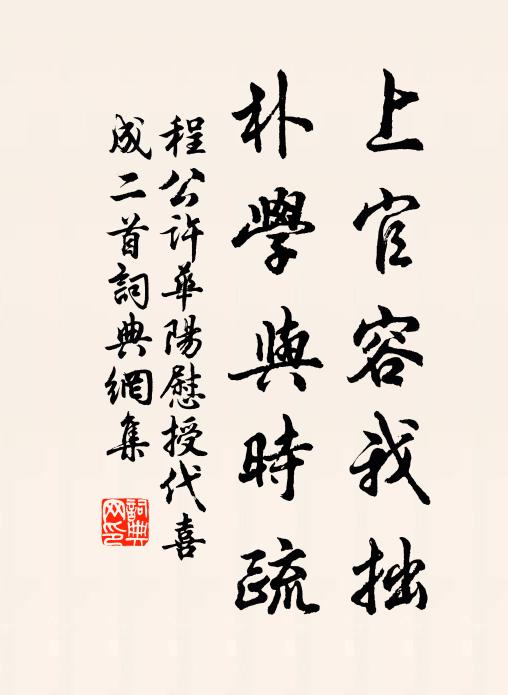 上官容我拙
朴學與時疏
程公許華陽慰授代喜
成二首詞典網集
詞典
网印